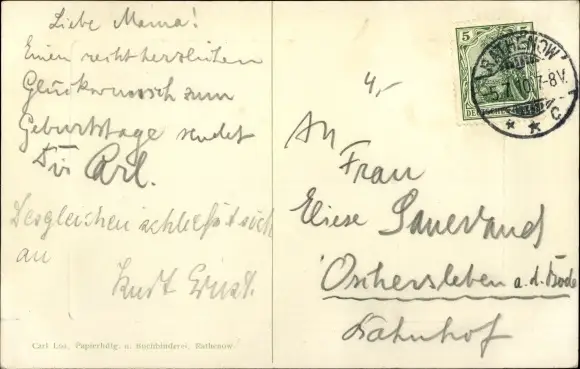 Liebe Mama!
Einen recht herzlichen
Glückwunsch zum
Geburtstage sendet
Dir
Desgleichen schließt sich
an
Kurt Ernst.
Carl Lue, Papierhdlg. u. Buchbinderei, Rathenow
4,-
5 5
RATHENOW
5.7.10.7-8V.
* * C
An
Frau
Eliese Sauerland
Oschersleben a. d. Bode
Bahnhof